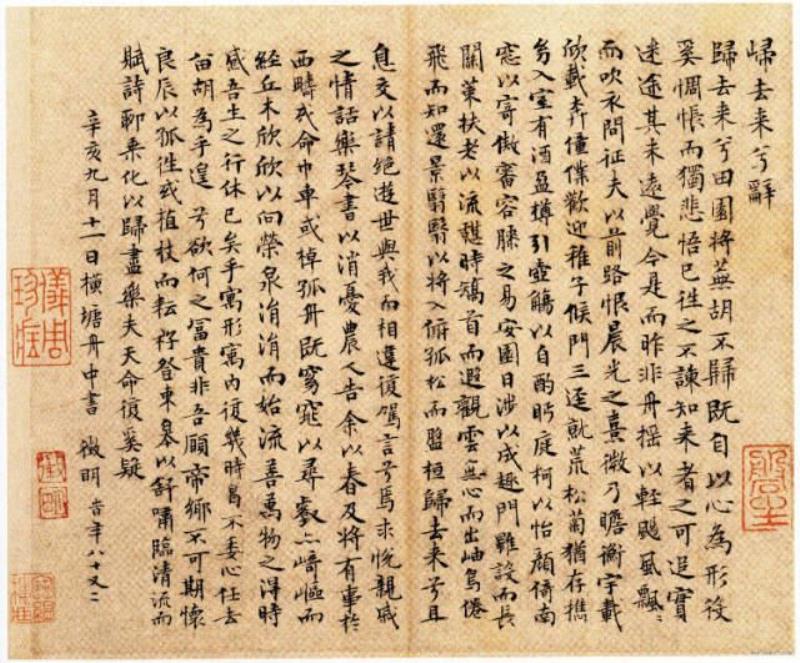 歸去来兮辭
歸去来兮田園將蕪胡不歸既自以心為形役
奚惆悵而獨悲悟已往之不諫知来者之可追實
迷途其未遠覺今是而昨非舟摇以輕颺風飄〻
而吹衣問征夫以前路恨晨光之熹微乃瞻衡宇載
欣載奔僮僕歡迎稚子候門三逕就荒松菊猶存攜
幼入室有酒盈樽引壺觴以自酌眄庭柯以怡顏倚南
窓以寄傲審容膝之易安園日涉以成趣門雖設而長
關策扶老以流憩時矯首而遐觀雲無心而出岫鳥倦
飛而知還景翳翳以將入撫孤松而盤桓歸去来兮且
息交以請絶遊世與我而相違復駕言兮焉求悅親戚
之情話樂琴書以消憂農人告余以春及將有事於
西疇或命巾車或棹孤舟既窈窕以尋壑亦崎嶇而
經丘木欣欣以向榮泉涓涓而始流善萬物之得時
感吾生之行休已矣乎寓形寓内復幾時曷不委心任去
留胡為乎遑兮欲何之冨貴非吾願帝鄉不可期懷
良辰以孤往或植杖而耘耔登東皋以舒嘯臨清流而
賦詩聊乘化以歸盡樂夫天命復奚疑
辛亥九月十一日橫塘舟中書 徵明 時年八十又二
儀周珍藏
徵明